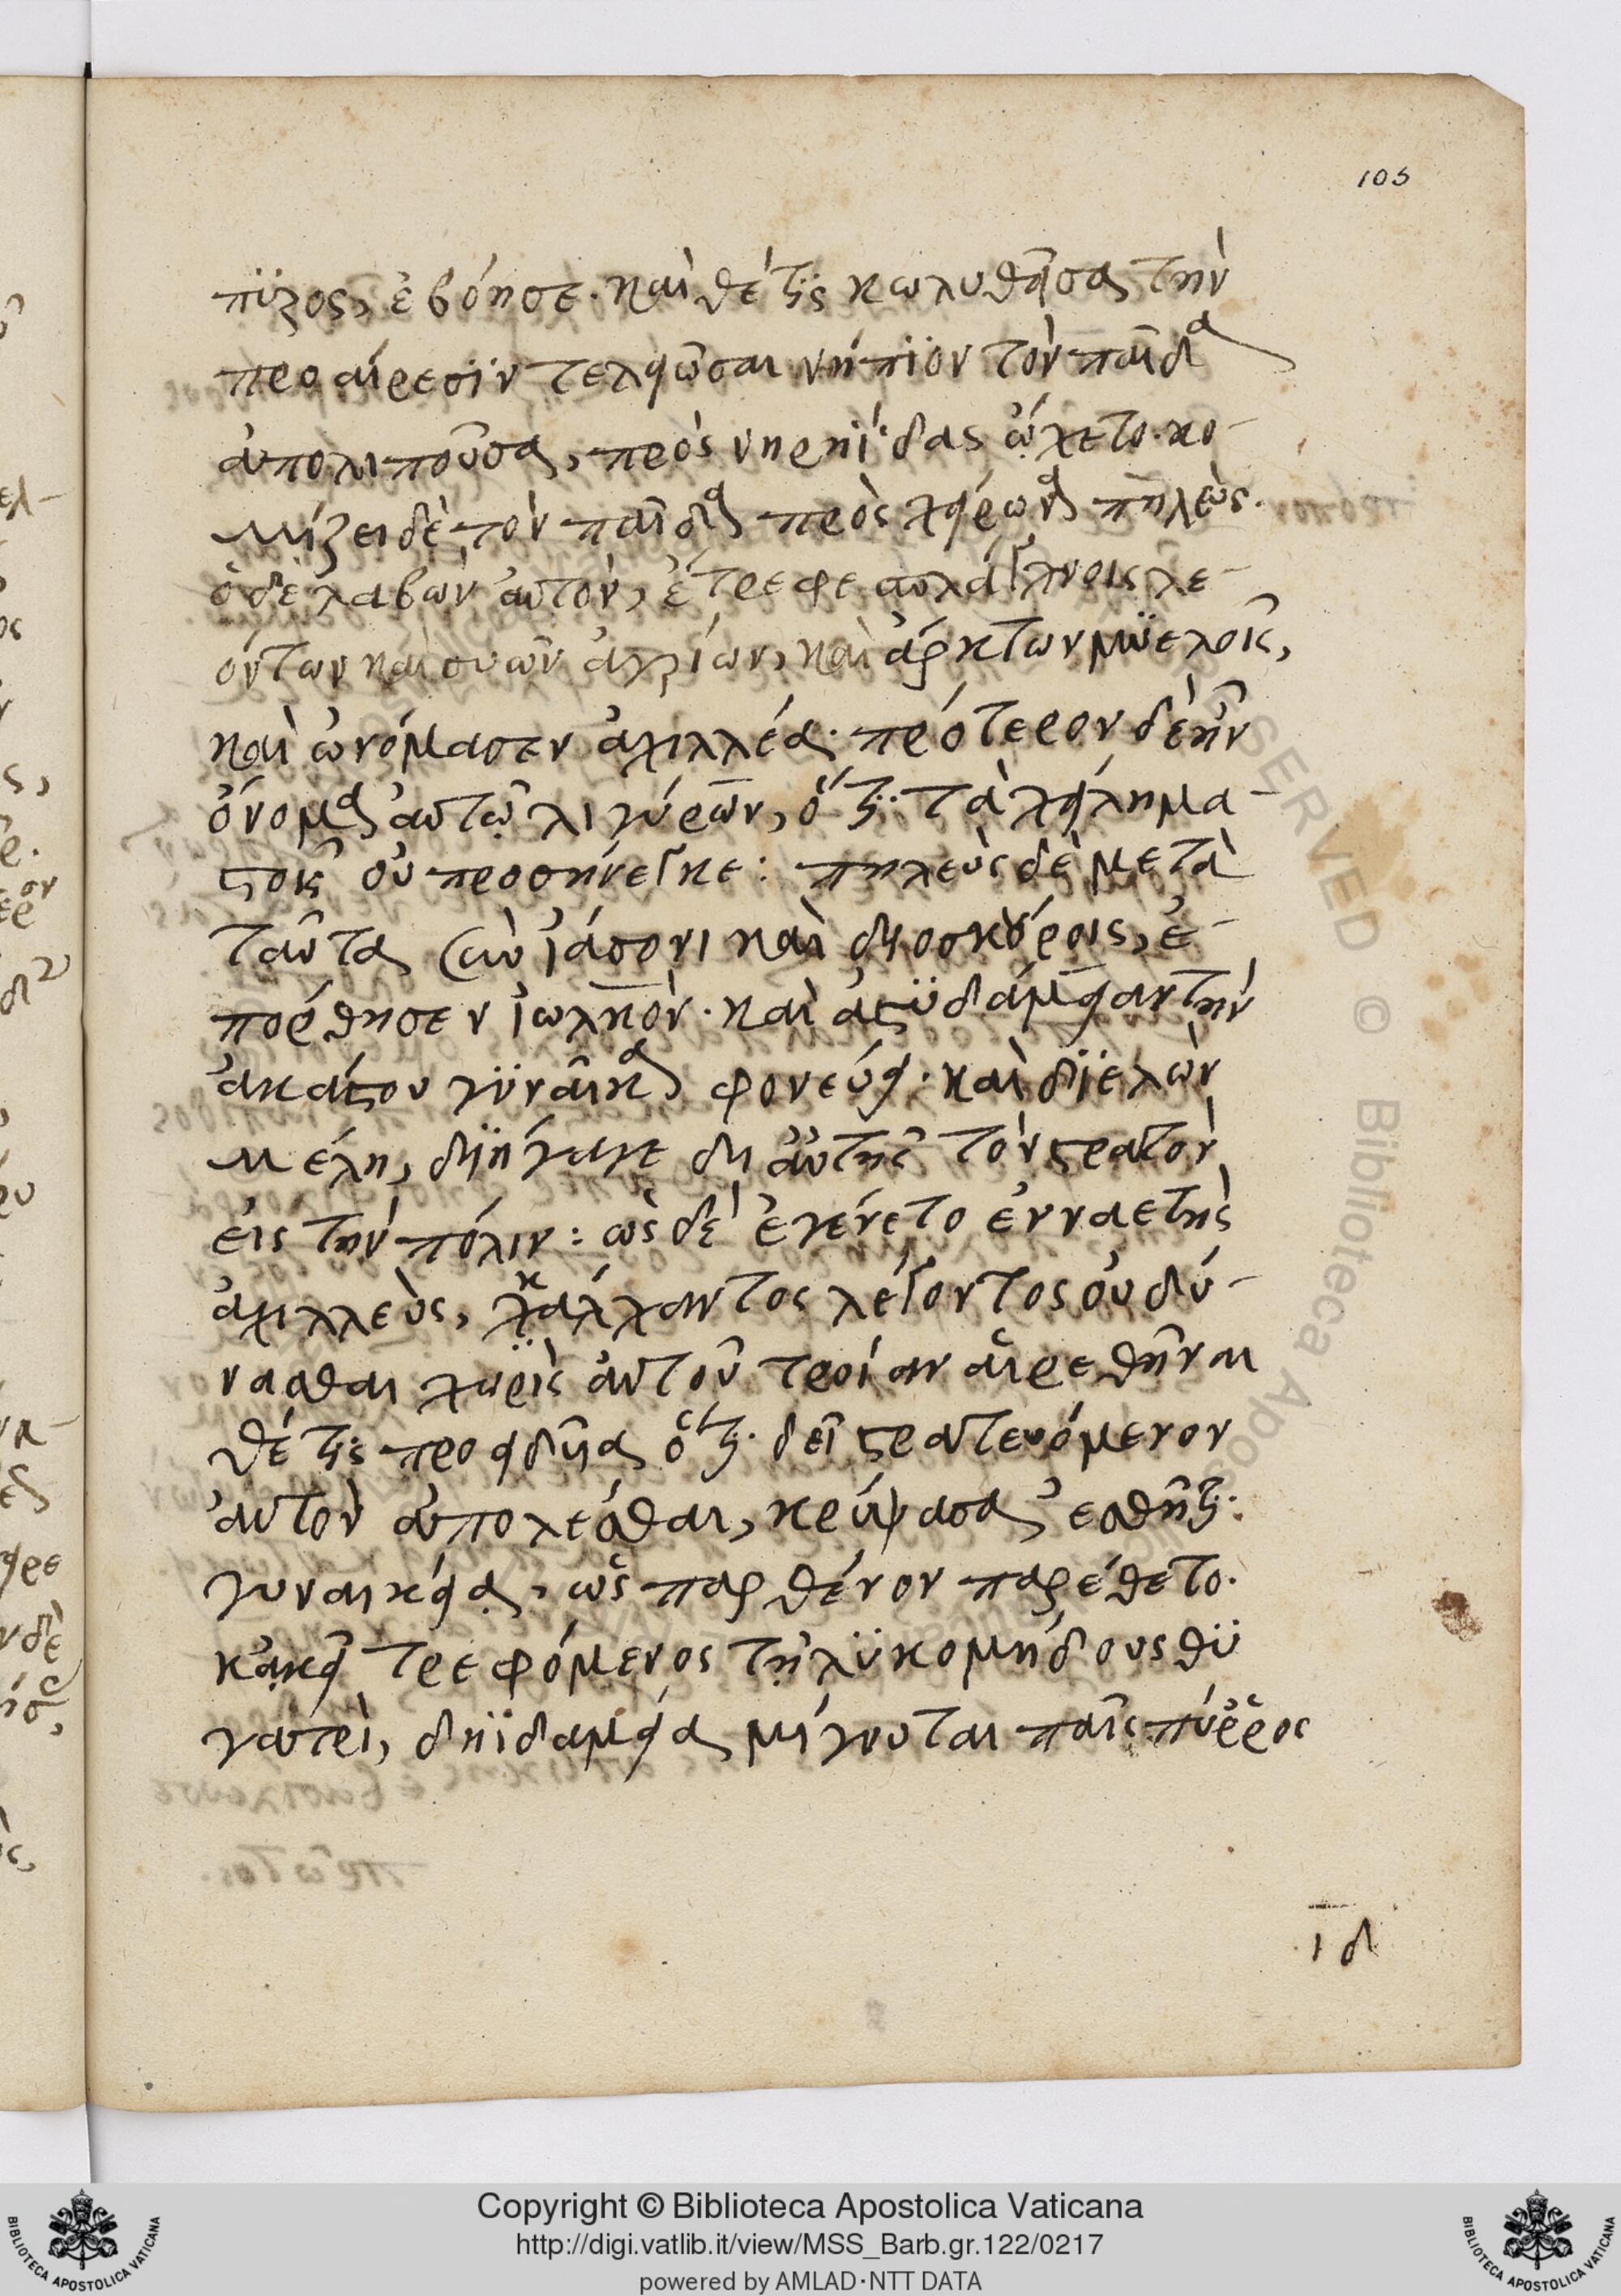 105
πϋρος, ἐβόησε. καὶ θέτϊς κωλυθεῖσα τὴν
προαίρεσϊν τελειῶσαι νήπϊον τὸν παῖδα
ἀπολιποῦσα, πρὸς νηρηΐδας ᾤχετο. κο-
μίζει δὲ τὸν παῖδα πρὸς χείρωνα πηλεὺς.
ὁ δὲ λαβὼν αὐτὸν, ἔτρεφε σπλάγχνοις λε-
όντων καὶ συῶν ἀγρίων, καὶ ἄρκτων μϋελοῖς,
καὶ ὠνόμασεν ἀχιλλέα. πρότερον δὲ ἦν
ὄνομα αὐτῷ λιγύρων, ὅτϊ τὰ χείλη μα-
στοῖς οὐ προσήνεγκε: πηλεὺς δὲ μετὰ
ταῦτα σὺν ἰάσονι καὶ διοσκούροις, ἐ-
πόρθησεν ἰωλκὸν. καὶ ἀστϋδάμειαν τὴν
ἀκάστου γϋναῖκα φονεύει. καὶ διελὼν
μέλη, διήγαγε δι αὐτῆς τὸν στρατὸν
εἰς τὴν πόλιν: ὡς δὲ ἐγένετο ἐνναετὴς
ἀχιλλεὺς, χκάλχαντος λέγοντος οὐ δύ-
νασθαι χωρὶς αὐτοῦ τροίαν αἱρεθῆναι
θέτϊς προειδυῖα ὅτι δεῖ στρατευόμενον
αὐτὸν ἀπολέσθαι, κρύψασα ἐσθῆτι
γυναικεία, ὡς παρθένον παρέθετο.
κἀκεῖ τρεφόμενος τῇ λϋκομήδους θϋ
γατρὶ, δηϊδαμεία μίγνυται παῖς πύῤῥος
ιδ
Copyright © Biblioteca Apostolica Vaticana
http://digi.vatlib.it/view/MSS_Barb.gr.122/0217
powered by AMLAD·NTT DATA